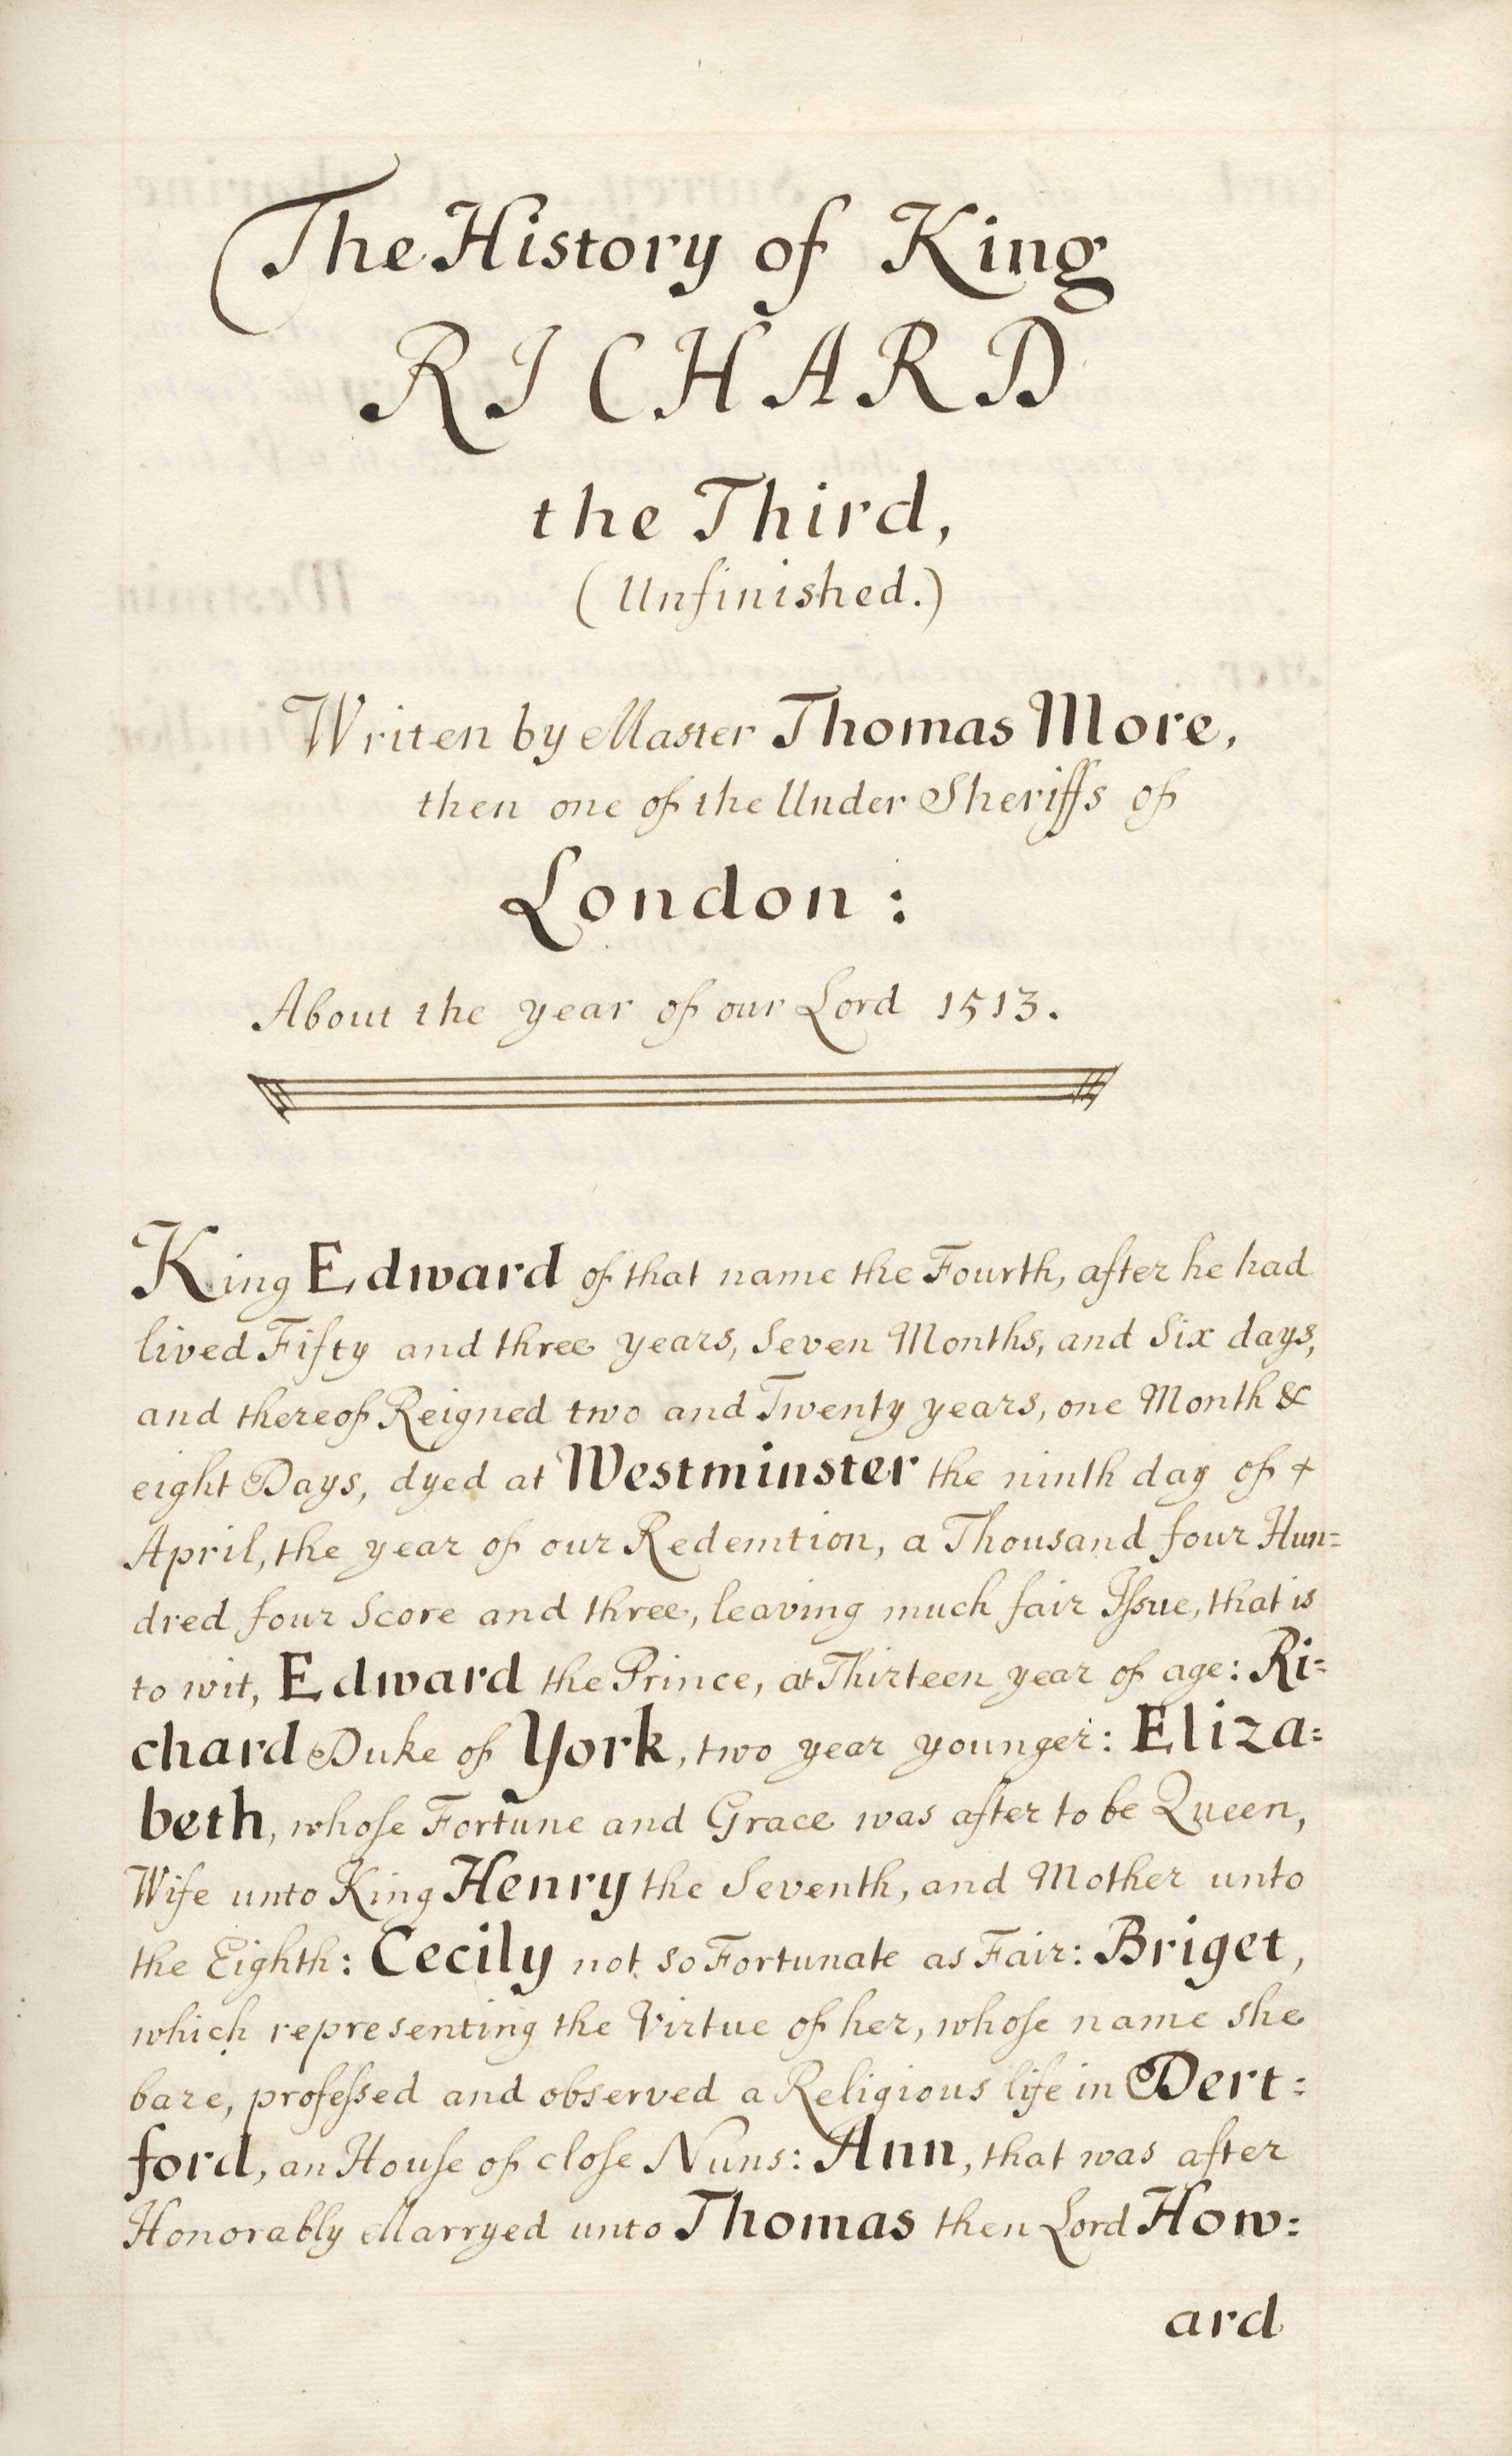 The History of King
RICHARD
the Third,
(Unfinished.)
Writen by Master Thomas More,
then one of the Under Sheriffs of
London:
About the year of our Lord 1513.
King Edward of that name the Fourth, after he had
lived Fifty and three years, Seven Months, and Six days,
and thereof Reigned two and Twenty years, one Month &
eight Days, dyed at Westminster the ninth day of
April, the year of our Redemtion, a Thousand four Hun=
dred four Score and three, leaving much fair Iſsue, that is
to wit, Edward the Prince, at Thirteen year of age: Ri=
chard Duke of York, two year younger: Eliza=
beth, whoſe Fortune and Grace was after to be Queen,
Wife unto King Henry the Seventh, and Mother unto
the Eighth: Cecily not so Fortunate as Fair: Briget,
which representing the Virtue of her, whoſe name she
bare, profeſsed and observed a Religious life in Dert=
ford, an Houſe of cloſe Nuns: Ann, that was after
Honorably Marryed unto Thomas then Lord How=
ard